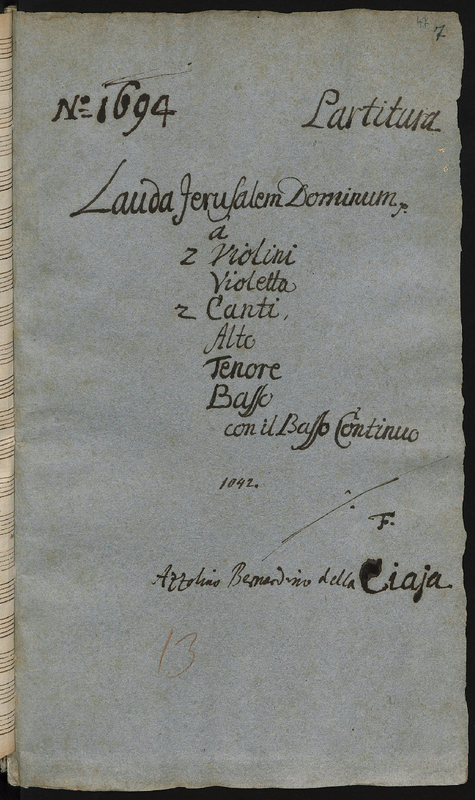 7
No. 1694
Partitura
Lauda Jeruſalem Dominum,
a
2 Violini
Violetta
2 Canti,
Alto
Tenore
Baſſo
con il Baſſo Continuo
1042.
F.
Azzolino Bernardino della Ciaja
13